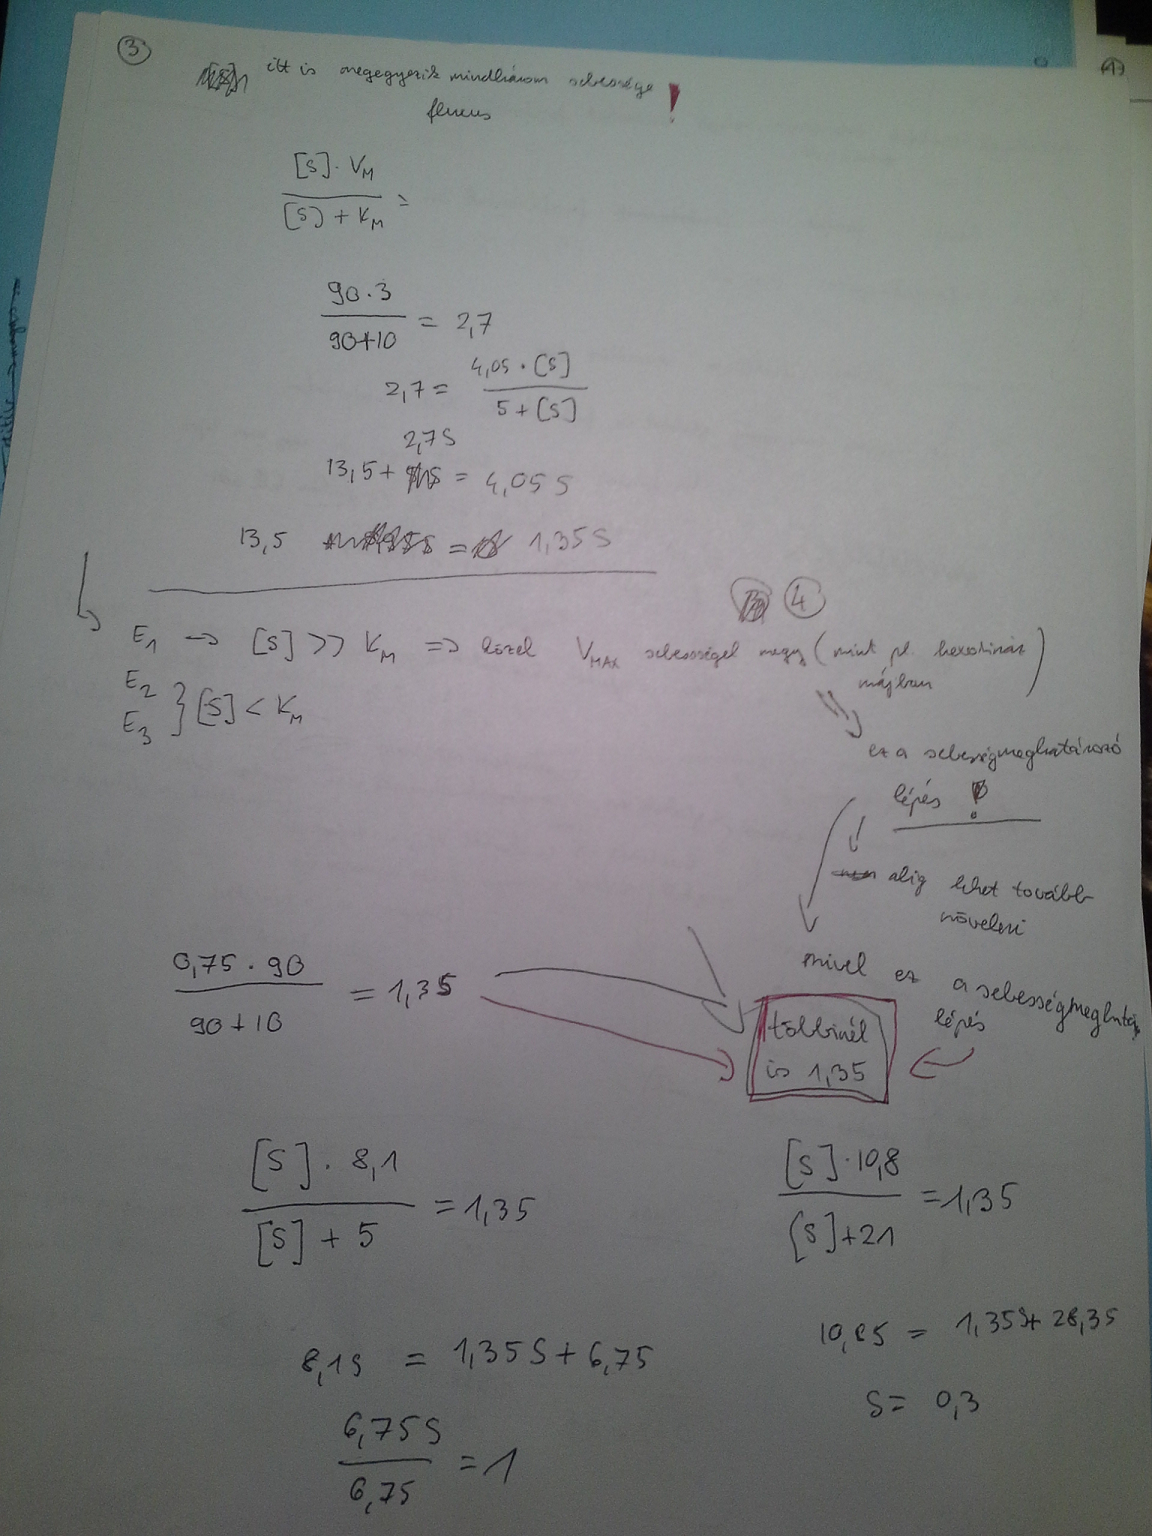 ③
itt is megegyezik mindhárom sebessége !
fluxus
[S] · V_M
[S] + K_M =
90 · 3
90+10 = 2,7
2,7 = 4,05 · [S]
5 + [S]
2,7S
13,5 + = 4,05 S
13,5 = 1,35 S
④
E1 → [S] >> K_M => közel V_MAX sebességgel megy (mint pl. hexokináz
májban)
E2
E3 } [S] < K_M
ez a sebességmeghatározó
lépés !
alig lehet tovább
növelni
mivel ez a sebességmeghatár
lépés
0,75 · 90
90 + 10 = 1,35
többinél
is 1,35
[S] · 8,1
[S] + 5 = 1,35
[S] · 10,8
[S] + 21 = 1,35
8,1S = 1,35 S + 6,75
6,75 S
6,75 = 1
10,8S = 1,35S + 28,35
S = 0,3